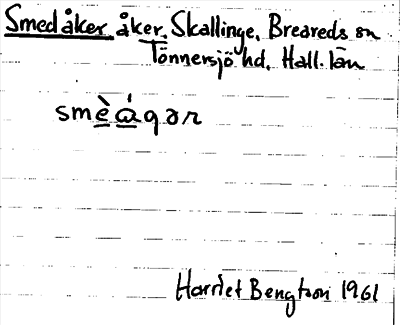 Smedåker åker, Skallinge, Breareds sn
Tönnersjö hd, Hall. län
smè̲á̲gər
Harriet Bengtson 1961